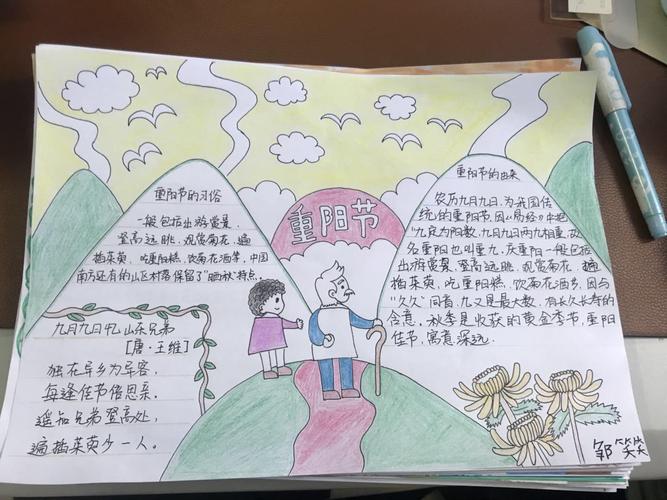 重阳节的习俗
一般包括出游赏景、
登高远眺、观赏菊花、遍
插茱萸、吃重阳糕、饮菊花酒等,中国
南方还有的山区村落保留了"晒秋"特点。
重阳节
重阳节的由来
农历九月九日,为我国传
统的重阳节,因《易经》中把
"九"定为阳数,九月九日两九相重,故
名重阳也叫重九,庆重阳一般包括
出游赏景、登高远眺、观赏菊花、遍
插茱萸、吃重阳糕、饮菊花酒等,因与
"久久"同音,九又是最大数,有长久长寿的
含意,秋季是收获的黄金季节,重阳
佳节,寓意深远.
九月九日忆山东兄弟
[唐·王维]
独在异乡为异客,
每逢佳节倍思亲。
遥知兄弟登高处,
遍插茱萸少一人。
邹笑笑